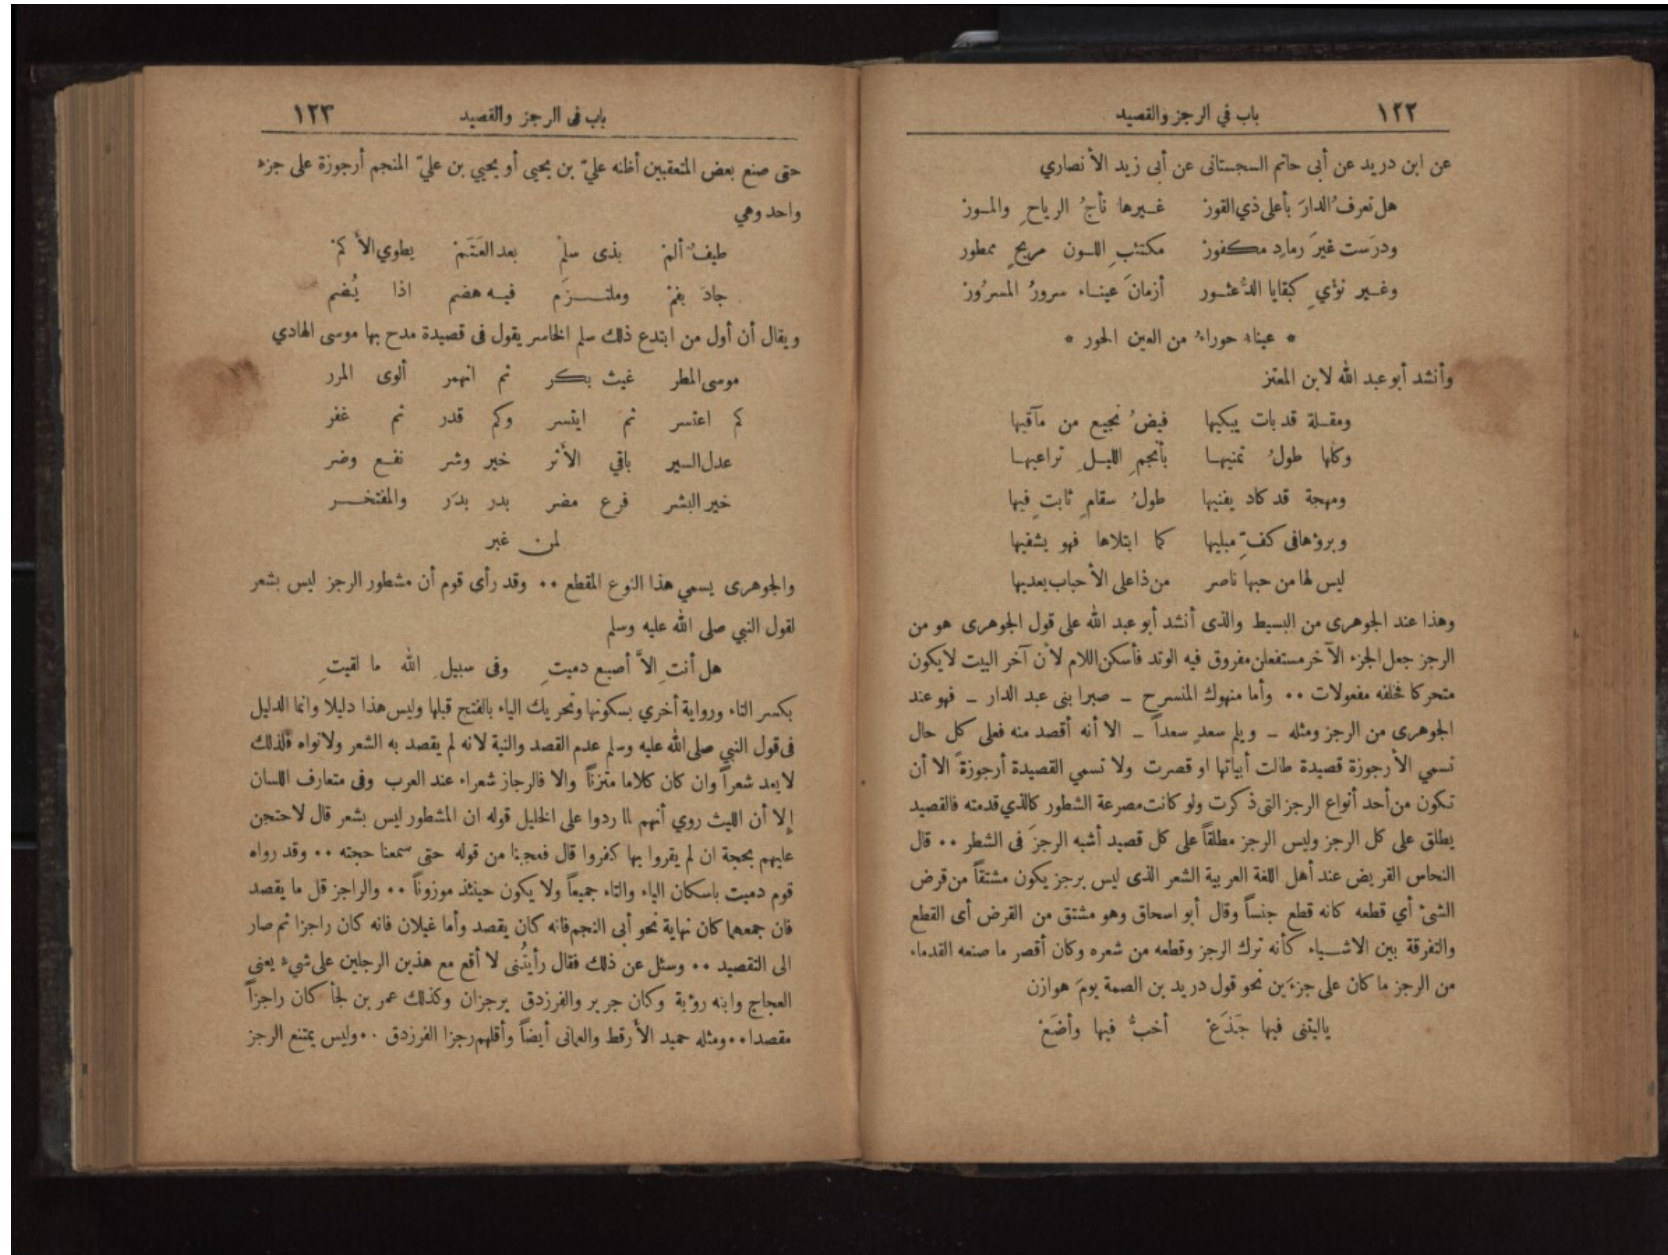 ١٢٢ باب في الرجز والقصيد
عن ابن دريد عن أبى حاتم السجستانى عن أبى زيد الأنصاري
هل تعرفُ الدارَ بأعلى ذي القورْ غـيرها نأجُ الرياحِ والمـورْ
ودرَست غيرَ رمادٍ مكفورْ مكتئبِ اللـون مريحٍ ممطور
وغـير نؤيٍ كبقايا الدُّعثـور أزمانَ عيناء سرورُ المسرُورْ
* عيناء حوراءُ من العين الحور *
وأنشد أبو عبد الله لابن المعتز
ومقـلة قد بات يبكيها فيضُ نجيع من مآقيها
وكلها طولُ تمنيهـا بأنجمِ الليـلِ تراعيهـا
ومهجة قد كاد يفنيها طولُ سقامٍ ثابتٍ فيها
وبرؤها فى كفِّ مبليها كما ابتلاها فهو يشفيها
ليس لها من حبها ناصر من ذا على الأحباب يعديها
وهذا عند الجوهرى من البسيط والذى أنشد أبو عبد الله على قول الجوهرى هو من
الرجز جعل الجزء الآخر مستفعلن مفروق فيه الوتد فأسكن اللام لأن آخر البيت لا يكون
متحركا فخلفه مفعولات ٠٠ وأما منهوك المنسرح ـ صبرا بنى عبد الدار ـ فهو عند
الجوهرى من الرجز ومثله ـ ويلم سعدٍ سعداً ـ الا أنه أقصد منه فعلى كل حال
تسمي الأرجوزة قصيدة طالت أبياتها او قصرت ولا تسمي القصيدة أرجوزةً الا أن
تكون من أحد أنواع الرجز التى ذكرت ولو كانت مصرعة الشطور كالذي قدمته فالقصيد
يطلق على كل الرجز وليس الرجز مطلقاً على كل قصيد أشبه الرجزَ فى الشطر ٠٠ قال
النحاس القريض عند أهل اللغة العربية الشعر الذى ليس برجز يكون مشتقاً من قرض
الشئ أي قطعه كانه قطع جنساً وقال أبو اسحاق وهو مشتق من القرض أى القطع
والتفرقة بين الاشـياء كأنه ترك الرجز وقطعه من شعره وكان أقصر ما صنعه القدماء
من الرجز ما كان على جزءَين نحو قول دريد بن الصمة يومَ هوازن
ياليتنى فيها جَذَعْ أخبُّ فيها وأضَعْ
باب فى الرجز والقصيد ١٢٣
حتى صنع بعض المتعقبين أظنه عليّ بن يحيى أو يحيي بن عليّ المنجم أرجوزة على جزء
واحد وهي
طيفٌ ألمْ بذى سلمْ بعد العَتَمْ يطوي الأكمْ
جادَ بفمْ وملتـزَم فيـه هضم اذا يُضم
ويقال أن أول من ابتدع ذلك سلم الخاسر يقول فى قصيدة مدح بها موسى الهادي
موسى المطر غيث بكر ثم انهمر ألوى المرر
كم اعتسر ثم ايتسر وكم قدر ثم غفر
عدل السير باقي الأثر خير وشر نفـع وضر
خير البشر فرع مضر بدر بدَر والمفتخـر
لمن غبر
والجوهرى يسمي هذا النوع المقطع ٠٠ وقد رأى قوم أن مشطور الرجز ليس بشعر
لقول النبي صلى الله عليه وسلم
هل أنتِ الاَّ أصبع دميتِ وفى سبيلِ الله ما لقيتِ
بكسر التاء ورواية أخري بسكونها وتحريك الياء بالفتح قبلها وليس هذا دليلا وانما الدليل
فى قول النبي صلى الله عليه وسلم عدم القصد والنية لانه لم يقصد به الشعر ولا نواه فلذلك
لا يعد شعراً وان كان كلاما متزناً والا فالرجاز شعراء عند العرب وفى متعارف اللسان
إلا أن الليث روي أنهم لما ردوا على الخليل قوله ان المشطور ليس بشعر قال لاحتجن
عليهم بحجة ان لم يقروا بها كفروا قال فعجبنا من قوله حتى سمعنا حجته ٠٠ وقد رواه
قوم دميت باسكان الياء والتاء جميعاً ولا يكون حينئذ موزوناً ٠٠ والراجز قل ما يقصد
فان جمعهما كان نهاية نحو أبى النجم فانه كان يقصد وأما غيلان فانه كان راجزا ثم صار
الى التقصيد ٠٠ وسئل عن ذلك فقال رأيتُنى لا أقع مع هذين الرجلين على شيء يعنى
العجاج وابنه رؤبة وكان جرير والفرزدق يرجزان وكذلك عمر بن لجأ كان راجزاً
مقصدا ٠٠ ومثله حميد الأرقط والعمانى أيضاً وأقلهم رجزا الفرزدق ٠٠ وليس يمتنع الرجز